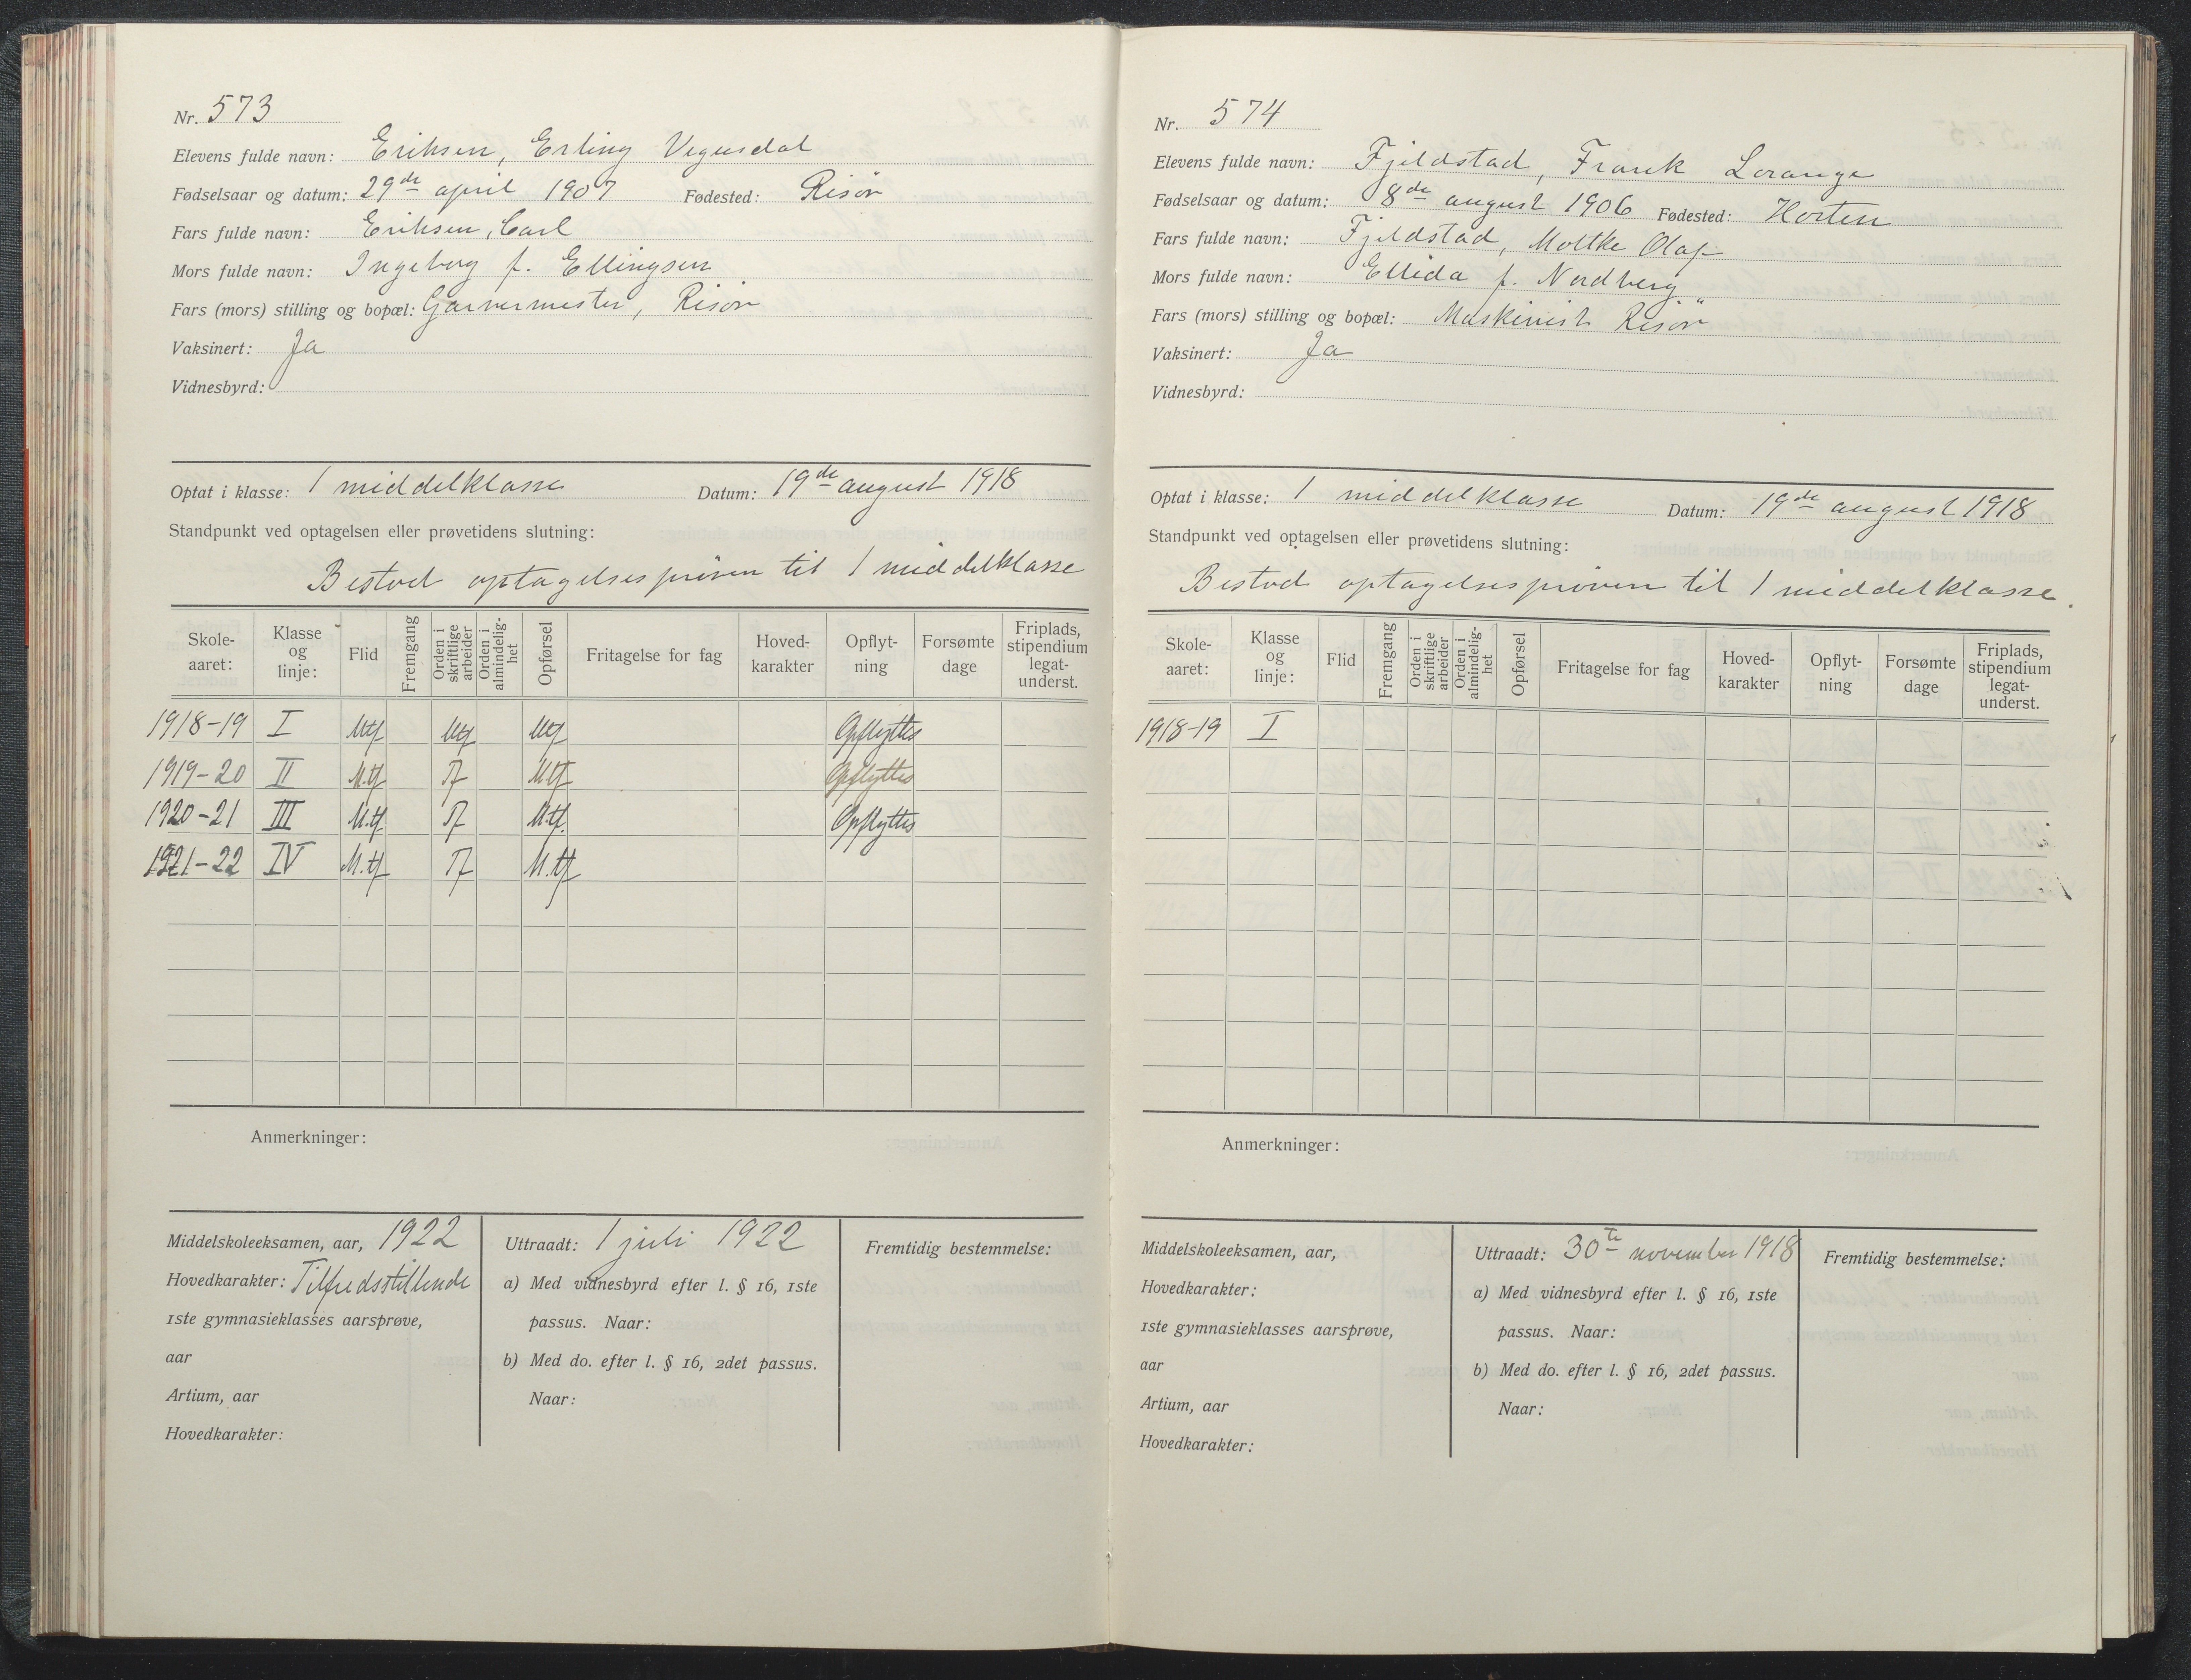 Nr. 573
Elevens fulde navn: Eriksen, Erling Vegusdal
Fødselsaar og datum: 29de april 1907 Fødested: Risør
Fars fulde navn: Eriksen, Carl
Mors fulde navn: Ingeborg f. Ellingsen
Fars (mors) stilling og bopæl: Garvermester, Risör
Vaksinert: Ja
Vidnesbyrd:
Optat i klasse: 1 middelklasse Datum: 19de august 1918
Standpunkt ved optagelsen eller prøvetidens slutning:
Bestod optagelsesprøven til 1 middelklasse
Skole-aaret: Klasse og linje: Flid Fremgang Orden i skriftlige arbeider Orden i almindelig-het Opførsel Fritagelse for fag Hoved-karakter Opflyt-ning Forsømte dage Friplads, stipendium legat-underst.
1918-19 I Mtf Mtf Mtf Opflyttes
1919-20 II M.tf Tf M.tf Opflyttes
1920-21 III M.tf Tf M.tf. Opflyttes
1921-22 IV M.tf Tf M.tf
Anmerkninger:
Middelskoleeksamen, aar, 1922
Hovedkarakter: Tilfredsstillende
1ste gymnasieklasses aarsprøve,
aar
Artium, aar
Hovedkarakter:
Uttraadt: 1 juli 1922
a) Med vidnesbyrd efter l. § 16, 1ste
passus. Naar:
b) Med do. efter l. § 16, 2det passus.
Naar:
Fremtidig bestemmelse:
Nr. 574
Elevens fulde navn: Fjeldstad, Frank Lorange
Fødselsaar og datum: 8de august 1906 Fødested: Horten
Fars fulde navn: Fjeldstad, Moltke Olaf
Mors fulde navn: Ellida f. Nordberg
Fars (mors) stilling og bopæl: Maskinist Risör
Vaksinert: Ja
Vidnesbyrd:
Optat i klasse: 1 middelklasse Datum: 19de august 1918
Standpunkt ved optagelsen eller prøvetidens slutning:
Bestod optagelsesprøven til 1 middelklasse.
Skole-aaret: Klasse og linje: Flid Fremgang Orden i skriftlige arbeider Orden i almindelig-het Opførsel Fritagelse for fag Hoved-karakter Opflyt-ning Forsømte dage Friplads, stipendium legat-underst.
1918-19 I
Anmerkninger:
Middelskoleeksamen, aar,
Hovedkarakter:
1ste gymnasieklasses aarsprøve,
aar
Artium, aar
Hovedkarakter:
Uttraadt: 30te november 1918
a) Med vidnesbyrd efter l. § 16, 1ste
passus. Naar:
b) Med do. efter l. § 16, 2det passus.
Naar:
Fremtidig bestemmelse: